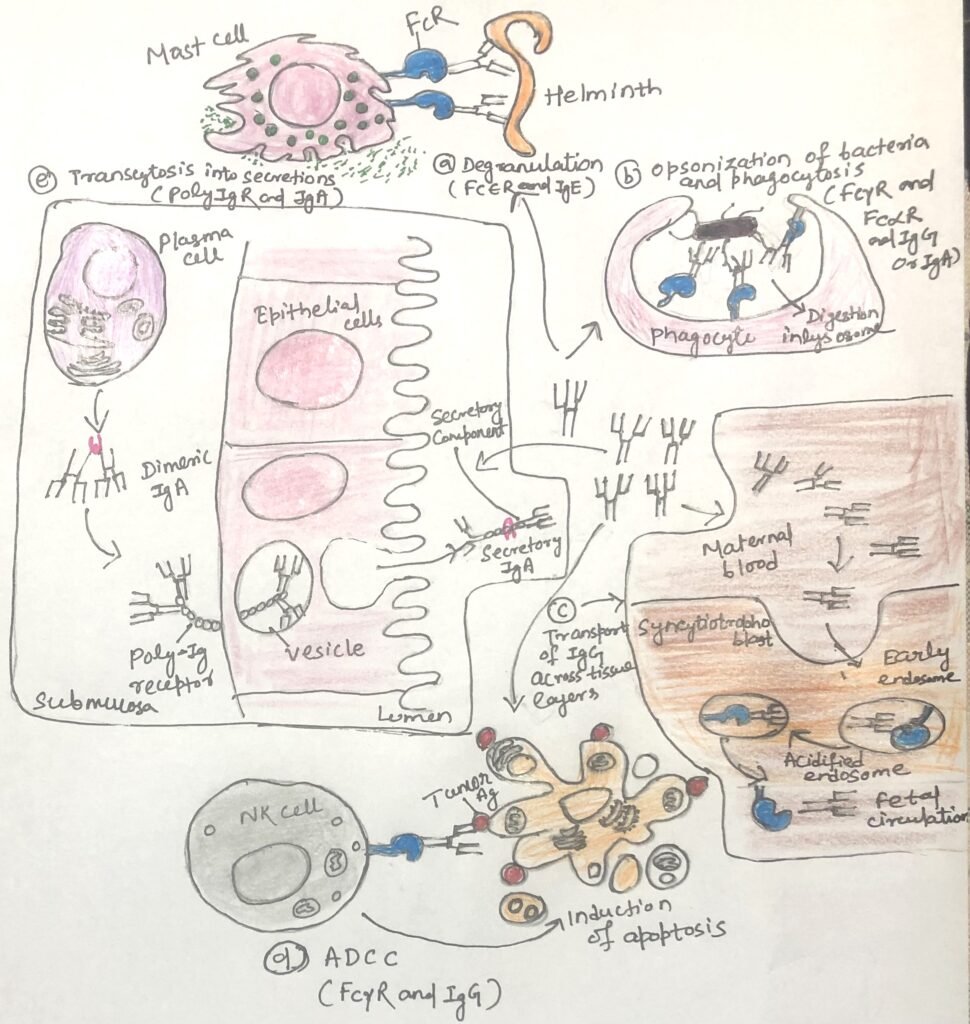 Mast cell
FcR
Helminth
ⓐ Degranulation
(FcεR and IgE)
ⓑ opsonization of bacteria
and phagocytosis
(FcγR and
FcαR
and IgG
Or IgA)
Phagocyte
Digestion
in lysosome
ⓔ Transcytosis into secretions
(Poly IgR and IgA)
Plasma
cell
Epithelial
cells
Dimeric
IgA
Secretory
Component
Secretory
IgA
Poly-Ig
receptor
vesicle
Submucosa
Lumen
ⓒ
Transport
of IgG
across tissue
layers
Maternal
blood
Syncytiotropho
blast
Early
endosome
Acidified
endosome
Fetal
circulation
NK cell
Tumor
Ag
Induction
of apoptosis
ⓓ ADCC
(FcγR and IgG)